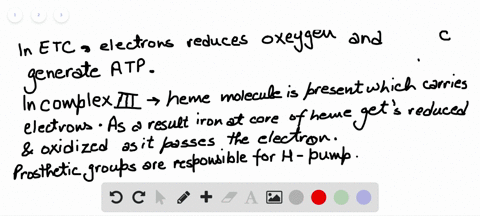 In ETC → electrons reduces oxeygen and c
generate ATP.
In complex III → heme molecule is present which carries
electrons. As a result iron at core of heme get's reduced
& oxidized as it passes the electron.
Prosthetic groups are responsible for H-pump.